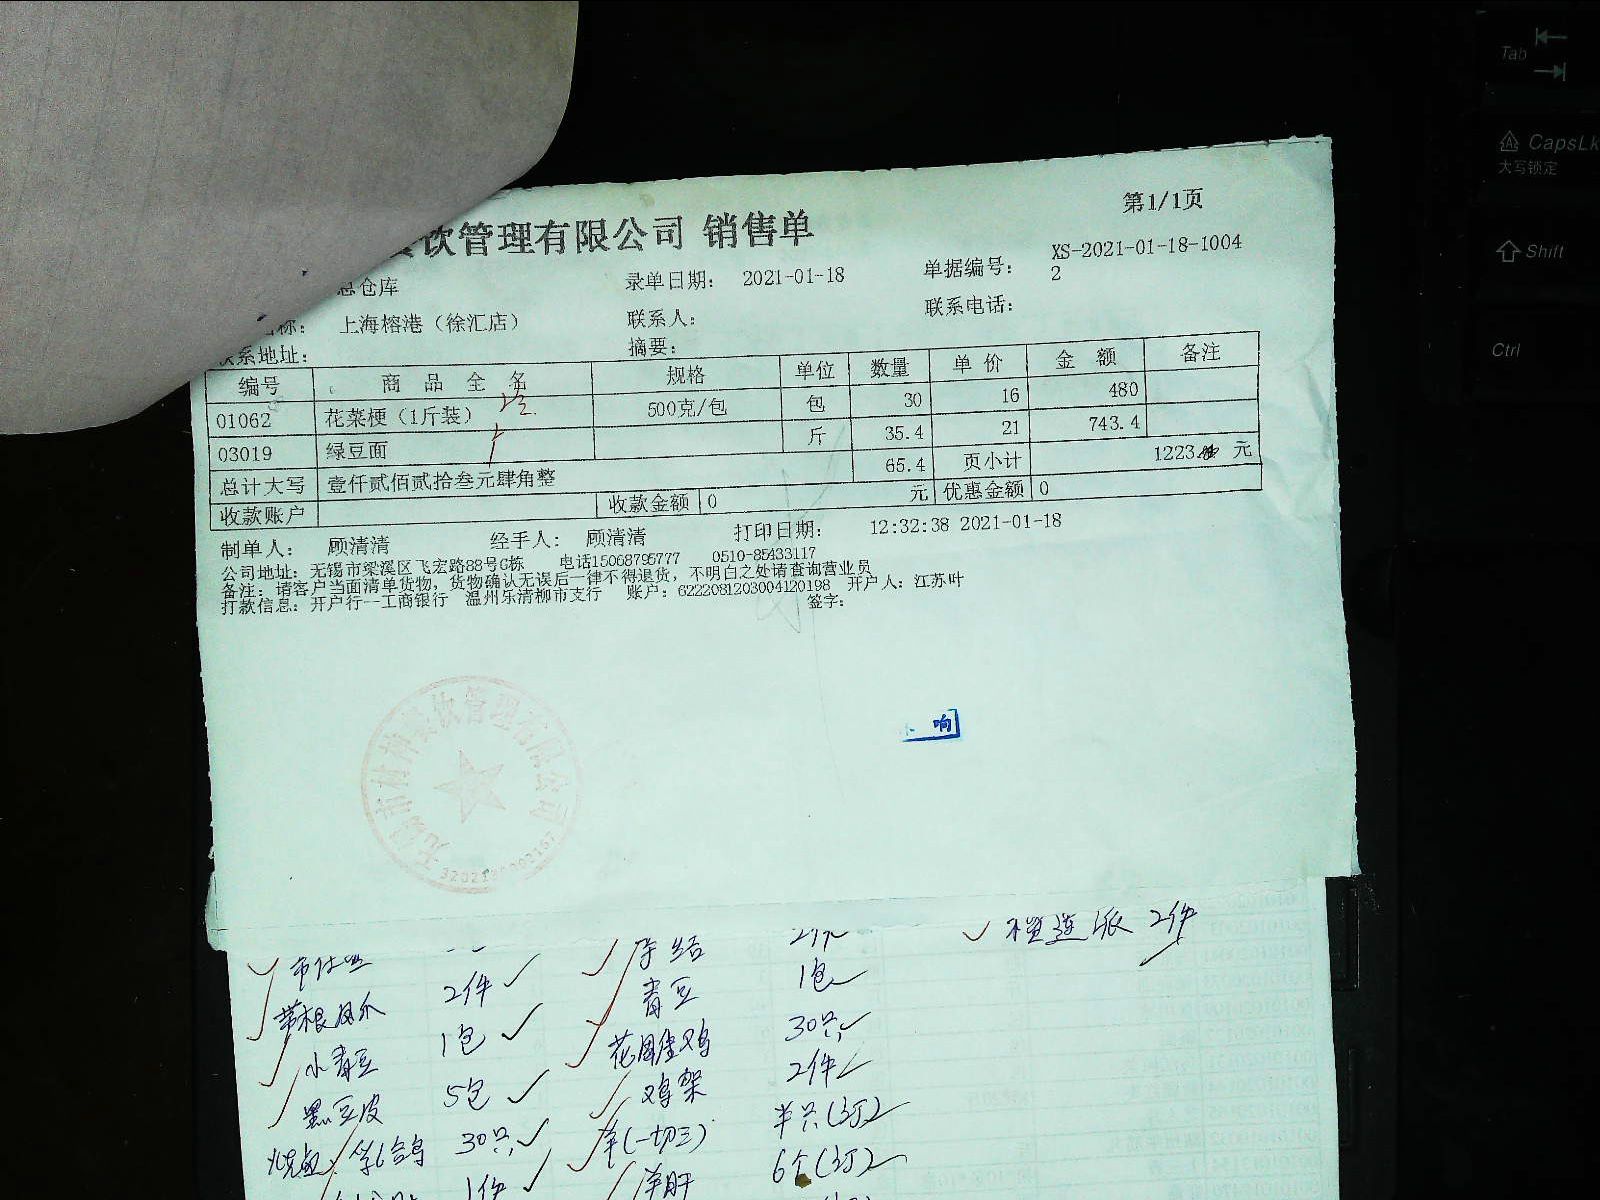 第1/1页
饮管理有限公司 销售单
总仓库 录单日期： 2021-01-18 单据编号： XS-2021-01-18-1004
2
名称： 上海榕港（徐汇店） 联系人： 联系电话：
联系地址： 摘要：
编号 商品全名 规格 单位 数量 单价 金额 备注
01062 花菜梗（1斤装） 500克/包 包 30 16 480
03019 绿豆面 斤 35.4 21 743.4
总计大写 壹仟贰佰贰拾叁元肆角整 65.4 页小计 1223. 元
收款账户 收款金额 0 元 优惠金额 0
制单人： 顾清清 经手人： 顾清清 打印日期： 12:32:38 2021-01-18
公司地址：无锡市梁溪区飞宏路88号G栋 电话15068795777 0510-85433117
备注：请客户当面清单货物，货物确认无误后一律不得退货，不明白之处请查询营业员
打款信息：开户行--工商银行 温州乐清柳市支行 账户：6222081203004120198 开户人：江苏叶
签字：
响
餐饮管理有限公司
2件
2件
青豆 1包
1包 30只
小青豆 鸡架 2件
黑豆皮 5包 半只
30只 羊(一切三) 6个
1件 羊肝
Tab
CapsLk
大写锁定
Shift
Ctrl